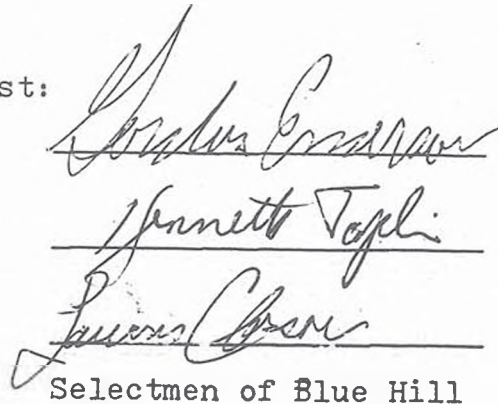 st:
Gordon Emerson
Kenneth Taplin
Selectmen of Blue Hill